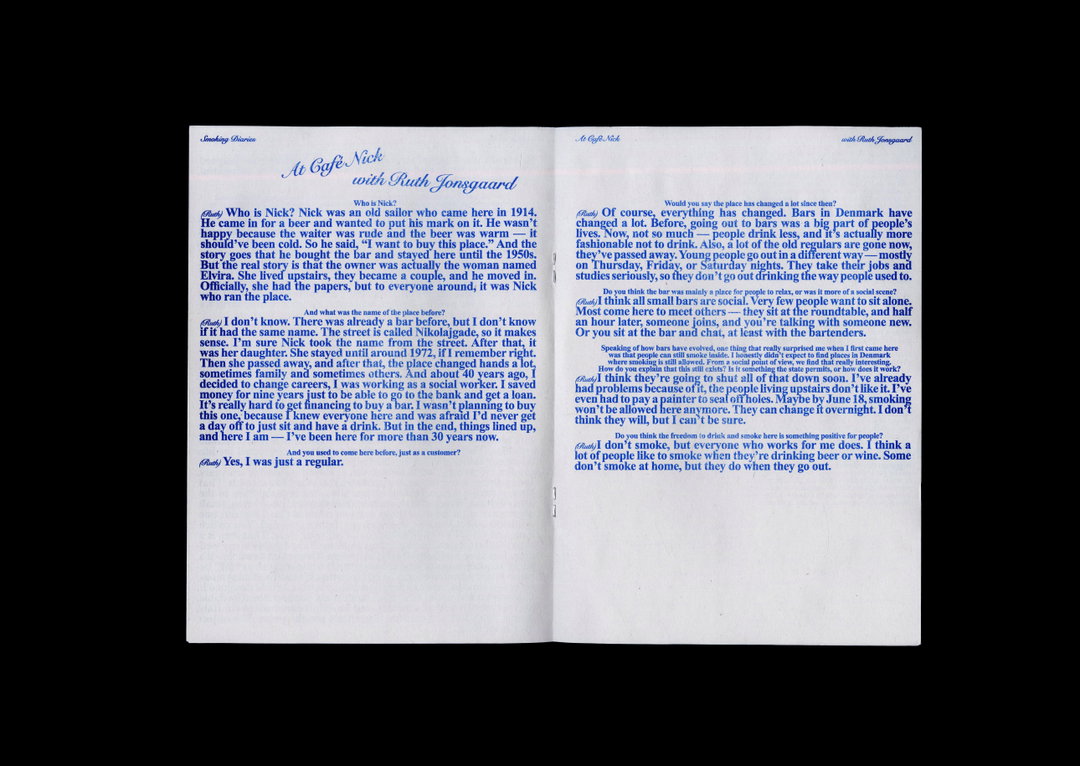 Smoking Diaries
At Café Nick
with Ruth Jonsgaard
Who is Nick?
(Ruth) Who is Nick? Nick was an old sailor who came here in 1914.
He came in for a beer and wanted to put his mark on it. He wasn't
happy because the waiter was rude and the beer was warm — it
should've been cold. So he said, “I want to buy this place.” And the
story goes that he bought the bar and stayed here until the 1950s.
But the real story is that the owner was actually the woman named
Elvira. She lived upstairs, they became a couple, and he moved in.
Officially, she had the papers, but to everyone around, it was Nick
who ran the place.
And what was the name of the place before?
(Ruth) I don't know. There was already a bar before, but I don't know
if it had the same name. The street is called Nikolajgade, so it makes
sense. I'm sure Nick took the name from the street. After that, it
was her daughter. She stayed until around 1972, if I remember right.
Then she passed away, and after that, the place changed hands a lot,
sometimes family and sometimes others. And about 40 years ago, I
decided to change careers, I was working as a social worker. I saved
money for nine years just to be able to go to the bank and get a loan.
It's really hard to get financing to buy a bar. I wasn't planning to buy
this one, because I knew everyone here and was afraid I'd never get
a day off to just sit and have a drink. But in the end, things lined up,
and here I am — I've been here for more than 30 years now.
And you used to come here before, just as a customer?
(Ruth) Yes, I was just a regular.
At Café Nick
with Ruth Jonsgaard
Would you say the place has changed a lot since then?
(Ruth) Of course, everything has changed. Bars in Denmark have
changed a lot. Before, going out to bars was a big part of people's
lives. Now, not so much — people drink less, and it's actually more
fashionable not to drink. Also, a lot of the old regulars are gone now,
they've passed away. Young people go out in a different way — mostly
on Thursday, Friday, or Saturday nights. They take their jobs and
studies seriously, so they don't go out drinking the way people used to.
Do you think the bar was mainly a place for people to relax, or was it more of a social scene?
(Ruth) I think all small bars are social. Very few people want to sit alone.
Most come here to meet others — they sit at the roundtable, and half
an hour later, someone joins, and you're talking with someone new.
Or you sit at the bar and chat, at least with the bartenders.
Speaking of how bars have evolved, one thing that really surprised me when I first came here
was that people can still smoke inside. I honestly didn't expect to find places in Denmark
where smoking is still allowed. From a social point of view, we find that really interesting.
How do you explain that this still exists? Is it something the state permits, or how does it work?
(Ruth) I think they're going to shut all of that down soon. I've already
had problems because of it, the people living upstairs don't like it. I've
even had to pay a painter to seal off holes. Maybe by June 18, smoking
won't be allowed here anymore. They can change it overnight. I don't
think they will, but I can't be sure.
Do you think the freedom to drink and smoke here is something positive for people?
(Ruth) I don't smoke, but everyone who works for me does. I think a
lot of people like to smoke when they're drinking beer or wine. Some
don't smoke at home, but they do when they go out.